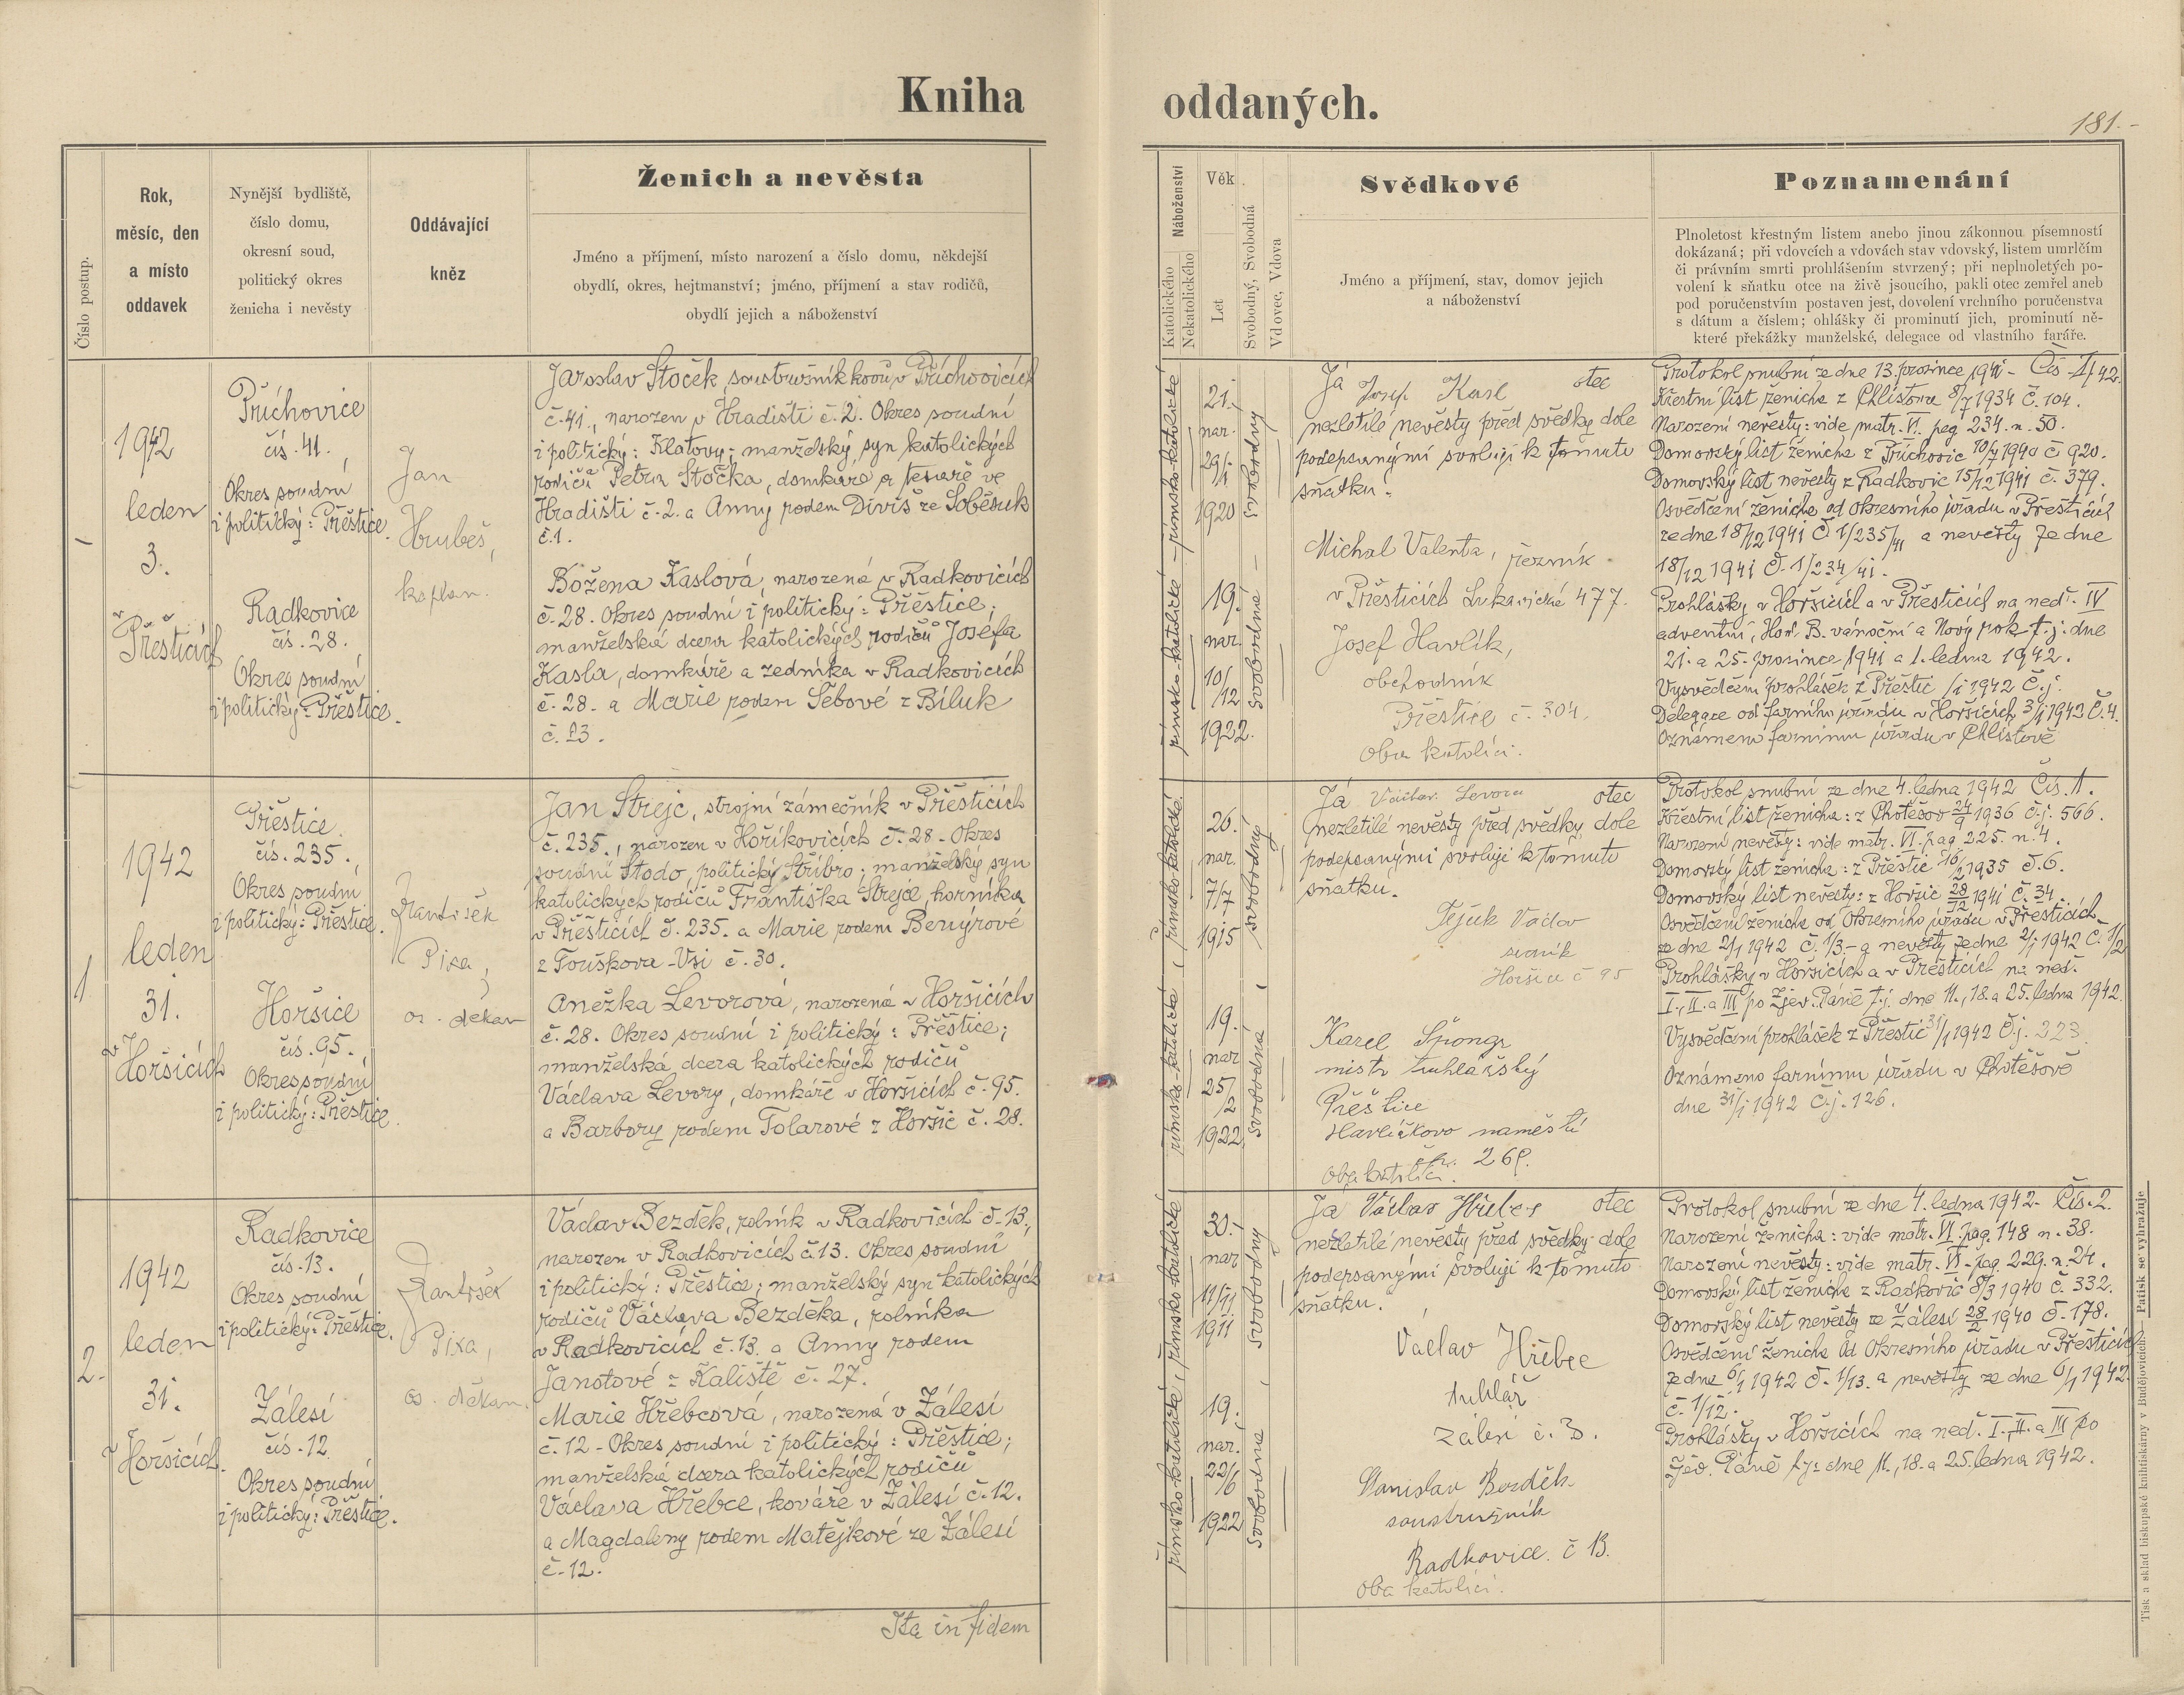 Kniha oddaných.
181.-
Číslo postup.
Rok,
měsíc, den
a místo
oddavek
Nynější bydliště,
číslo domu,
okresní soud,
politický okres
ženicha i nevěsty
Oddávající
kněz
Ženich a nevěsta
Jméno a příjmení, místo narození a číslo domu, někdejší
obydlí, okres, hejtmanství; jméno, příjmení a stav rodičů,
obydlí jejich a náboženství
Náboženství
Katolického
Nekatolického
Věk
Let
Svobodný, Svobodná
Vdovec, Vdova
Svědkové
Jméno a příjmení, stav, domov jejich
a náboženství
Poznamenání
Plnoletost křestným listem anebo jinou zákonnou písemností
dokázaná; při vdovcích a vdovách stav vdovský, listem umrlčím
či právním smrti prohlášením stvrzený; při neplnoletých po-
volení k sňatku otce na živě jsoucího, pakli otec zemřel aneb
pod poručenstvím postaven jest, dovolení vrchního poručenstva
s dátum a číslem; ohlášky či prominutí jich, prominutí ně-
které překážky manželské, delegace od vlastního faráře.
1942
leden
3.
v Přešticích
Příchovice
čís. 41.,
Okres soudní
i politický: Přeštice.
Radkovice
čís. 28.
Okres soudní
i politický: Přeštice.
Jan
Hrubeš,
kaplan.
Jaroslav Stoček, soustružník kovů v Příchovicích
č. 41., narozen v Hradišti č. 2. Okres soudní
i politický: Klatovy; manželský syn katolických
rodičů Petra Stočka, domkáře a tesaře ve
Hradišti č. 2. a Anny rodem Diviš ze Soběsuk
č. 1.
Božena Kaslová, narozená v Radkovicích
č. 28. Okres soudní i politický: Přeštice;
manželská dcera katolických rodičů Josefa
Kasla, domkáře a zedníka v Radkovicích
č. 28. a Marie rodem Šebové z Bíluk
č. 23.
římsko-katolické
římsko-katolické
21.
nar.
29/1
1920
19.
nar.
10/12
1922.
svobodný
svobodná
Já Josef Kasl otec
nezletilé nevěsty před svědky dole
podepsanými svoluji k tomuto
sňatku.
Michal Valenta, řezník
v Přešticích Lukavická 477.
Josef Havlík,
obchodník
Přeštice č. 304.
Oba katolíci.
Protokol snubní ze dne 13. prosince 1941 - Čís 1/42.
Křestní list ženicha z Chlistova 8/7 1934 č. 104.
Narození nevěsty: vide matr. VI. pag 234. n. 50.
Domovský list ženicha z Příchovic 10/7 1940 č 920.
Domovský list nevěsty z Radkovic 15/12 1941 č. 379.
Osvědčení ženicha od okresního úřadu v Přešticích
ze dne 18/12 1941 Č 1/235/41 a nevěsty ze dne
18/12 1941 Č. 1/234/41.
Prohlášky v Horšicích a v Přešticích na neď. IV
adventní, Hod B. vánoční a Nový rok t. j. dne
21. a 25. prosince 1941 a 1. ledna 1942.
Vysvědčení prohlášek z Přeštic /1 1942 Č.j.
Delegace od farního úřadu v Horšicích 3/1 1942 Č. 4.
Oznámeno farnímu úřadu v Chlistově
1
1942
leden
31.
v Horšicích
Přeštice
čís. 235.,
Okres soudní
i politický: Přeštice.
Horšice
čís. 95.,
Okres soudní
i politický: Přeštice.
František
Pixa,
os. děkan
Jan Strejc, strojní zámečník v Přešticích
č. 235., narozen v Hoříkovicích č. 28 - Okres
soudní Stodo, politický Stříbro; manželský syn
katolických rodičů Františka Strejce, horníka
v Přešticích č. 235. a Marie rodem Benýrové
z Touškova-Vsi č. 30.
Anežka Levorová, narozená v Horšicích
č. 28. Okres soudní i politický: Přeštice;
manželská dcera katolických rodičů
Václava Levory, domkáře v Horšicích č. 95.
a Barbory rodem Tolarové z Horšic č. 28.
římsko-katolické
římsko-katolická
26.
nar.
7/7
1915
19.
nar
25/2
1922
svobodný
svobodná
Já Václav Levora otec
nezletilé nevěsty před svědky dole
podepsanými svoluji k tomuto
sňatku.
Václav
Horšice č 95
Karel Špongr
mistr truhlářský
Přeštice
Havlíčkovo náměstí
Oba katolíci.
Protokol snubní ze dne 4. ledna 1942 Čís. 1.
Křestní list ženicha: z Chotěšov 24/9 1936 č.j. 566.
Narození nevěsty: vide matr. VI. pag 225. n. 4.
Domovský list ženicha: z Přeštic 16/2 1935 č. 6.
Domovský list nevěsty: z Horšic 28/12 1941 č. 34
Osvědčení ženicha od Okresního úřadu v Přešticích
ze dne 2/1 1942 č. 1/3 - a nevěsty ze dne 2/1 1942 č. 1/2
Prohlášky v Horšicích a v Přešticích na neď.
I., II. a III po Zjev. Páně t.j. dne 11., 18. a 25. ledna 1942.
Vysvědčení prohlášek z Přeštic 31/1 1942 Č.j. 223
Oznámeno farnímu úřadu v Chotěšově
dne 31/1 1942 Č.j. 126.
2.
1942
leden
31.
v Horšicích.
Radkovice
čís. 13.
Okres soudní
i politický: Přeštice.
Zálesí
čís. 12
Okres soudní
i politický: Přeštice.
František
Pixa,
os. děkan.
Václav Bezděk, rolník v Radkovicích č. 13.,
narozen v Radkovicích č. 13. Okres soudní
i politický: Přeštice; manželský syn katolických
rodičů Václava Bezděka, rolníka
v Radkovicích č. 13. a Anny rodem
Janotové z Kaliště č. 27.
Marie Hřebcová, narozená v Zálesí
č. 12 - Okres soudní i politický: Přeštice;
manželská dcera katolických rodičů
Václava Hřebce, kováře v Zálesí č. 12.
a Magdaleny rodem Matějkové ze Zálesí
č. 12.
římsko katolické
římsko katolické
30.
nar
11/11
1911
19.
nar.
22/6
1922
svobodný
svobodná
Já Václav Hřebec otec
nezletilé nevěsty před svědky dole
podepsanými svoluji k tomuto
sňatku.
Václav Hřebec
truhlář
Zálesí č. 3.
Stanislav Bezděk
soustružník
Radkovice č 13.
Oba katolíci.
Protokol snubní ze dne 4. ledna 1942. Čís. 2.
Narození ženicha: vide matr. VI. pag. 148 n. 38.
Narození nevěsty: vide matr. VI. pag. 229. n. 24.
Domovský list ženicha z Radkovic 8/3 1940 č. 332.
Domovský list nevěsty ze Zálesí 28/2 1940 č. 178.
Osvědčení ženicha od Okresního úřadu v Přešticích
ze dne 6/1 1942 č. 1/13. a nevěsty ze dne 6/1 1942
č. 1/12.
Prohlášky v Horšicích na neď. I., II. a III po
Zjev. Páně t.j. dne 11., 18. a 25. ledna 1942.
Ita in fidem
Tisk a sklad biskupské knihtiskárny v Budějovicích. — Patisk se vyhražuje